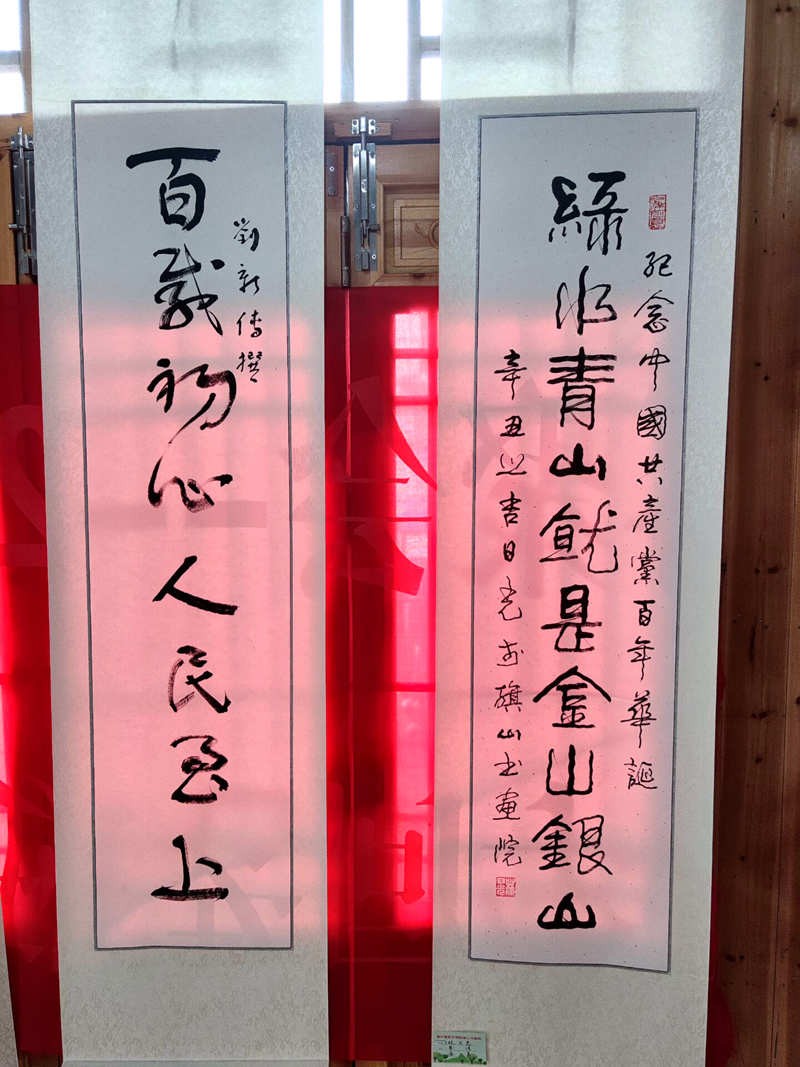 紀念中國共產黨百年華誕
綠水青山就是金山銀山
辛丑之吉日於旗山书畫院
劉新傳撰
百載初心人民至上